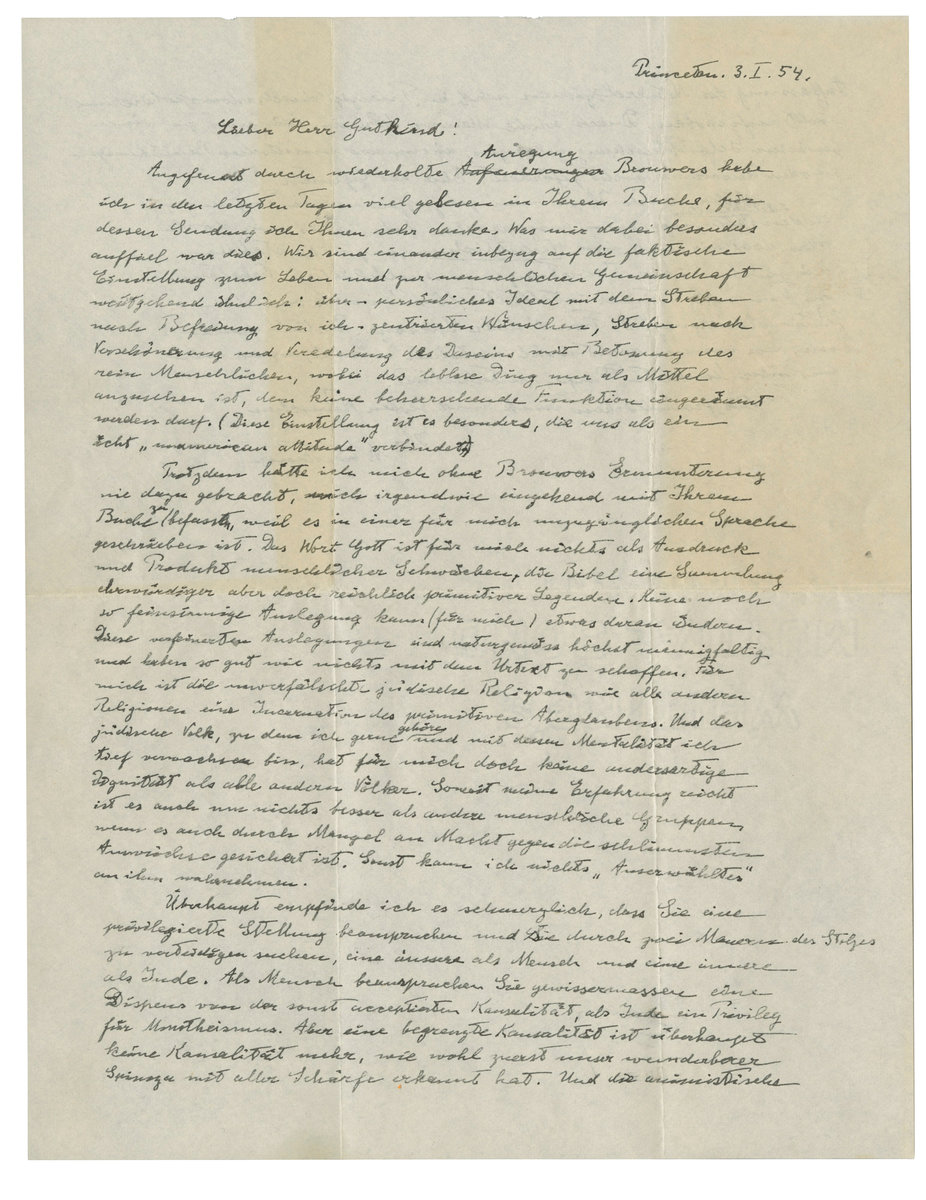 Princeton. 3. I. 54.
Lieber Herr Gutkind!
Anregung
Angefeuert durch wiederholte Anfeuerungen Brouwers habe
ich in den letzten Tagen viel gelesen in Ihrem Buche, für
dessen Sendung ich Ihnen sehr danke. Was mir dabei besonders
auffiel war dies. Wir sind einander inbezug auf die faktische
Einstellung zum Leben und zur menschlichen Gemeinschaft
weitgehend ähnlich: über-persönliches Ideal mit dem Streben
nach Befreiung von ich-zentrierten Wünschen, Streben nach
Verschönerung und Veredelung des Daseins mit Betonung des
rein Menschlichen, wobei das leblose Ding nur als Mittel
anzusehen ist, dem keine beherrschende Funktion eingeräumt
werden darf. (Diese Einstellung ist es besonders, die uns als ein
ächt „unamerican attitude" verbindet.)
Trotzdem hätte ich mich ohne Brouwers Ermunterung
nie dazu gebracht, mich irgendwie eingehend mit Ihrem
Buche zu befassen, weil es in einer für mich unzugänglichen Sprache
geschrieben ist. Das Wort Gott ist für mich nichts als Ausdruck
und Produkt menschlicher Schwächen, die Bibel eine Sammlung
ehrwürdiger aber doch reichlich primitiver Legenden. Keine noch
so feinsinnige Auslegung kann (für mich) etwas daran ändern.
Diese verfeinerten Auslegungen sind naturgemäss höchst mannigfaltig
und haben so gut wie nichts mit dem Urtext zu schaffen. Für
mich ist die unverfälschte jüdische Religion wie alle andern
Religionen eine Incarnation des primitiven Aberglaubens. Und das
jüdische Volk, zu dem ich gerne gehöre und mit dessen Mentalität ich
tief verwachsen bin, hat für mich doch keine andersartige
Dignität als alle andern Völker. Soweit meine Erfahrung reicht
ist es auch um nichts besser als andre menschliche Gruppen,
wenn es auch durch Mangel an Macht gegen die schlimmsten
Auswüchse gesichert ist. Sonst kann ich nichts „Auserwähltes"
an ihm wahrnehmen.
Überhaupt empfinde ich es schmerzlich, dass Sie eine
privilegierte Stellung beanspruchen und Sie durch zwei Mauern des Stolzes
zu verteidigen suchen, eine äussere als Mensch und eine innere
als Jude. Als Mensch beanspruchen Sie gewissermassen einen
Dispens von der sonst acceptierten Kausalität, als Jude ein Privileg
für Monotheismus. Aber eine begrenzte Kausalität ist überhaupt
keine Kausalität mehr, wie wohl zuerst unser wunderbarer
Spinoza mit aller Schärfe erkannt hat. Und die animistische